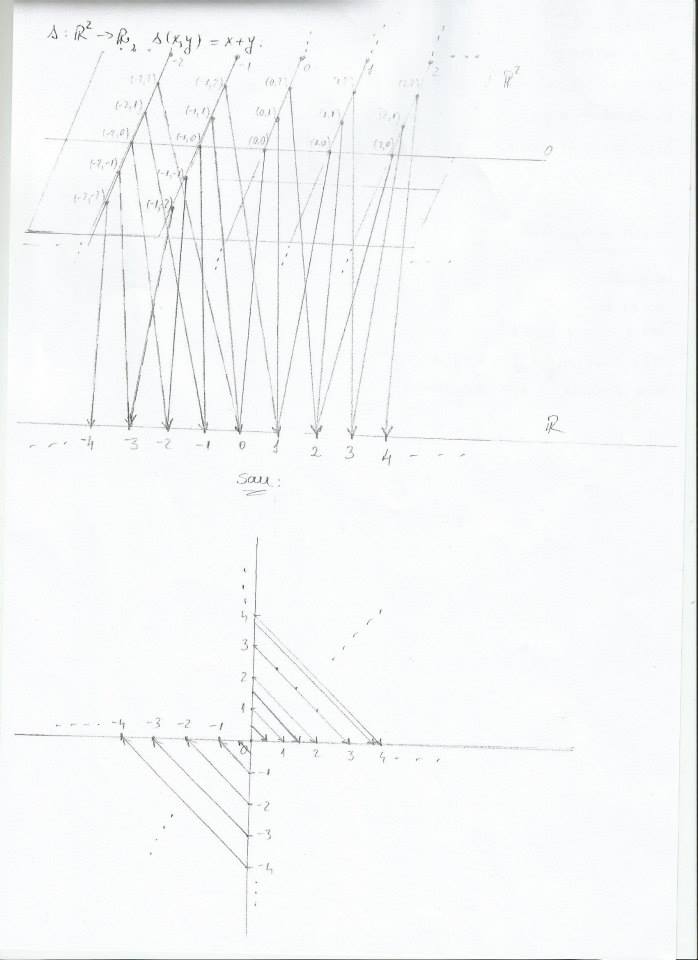 s : ℝ² → ℝ, s(x,y) = x+y.
-2 -1 0 1 2
ℝ²
(-2,2) (-1,2) (0,2) (1,2) (2,2)
(-2,1) (-1,1) (0,1) (1,1) (2,1)
(-2,0) (-1,0) (0,0) (1,0) (2,0) 0
(-2,-1) (-1,-1)
(-2,-2) (-1,-2)
ℝ
-4 -3 -2 -1 0 1 2 3 4
sau:
4
3
2
1
-4 -3 -2 -1 0 1 2 3 4
-1
-2
-3
-4